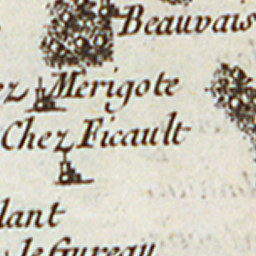 Beauvais
ez Merigote
Chez Ficault
lant
le Gureau